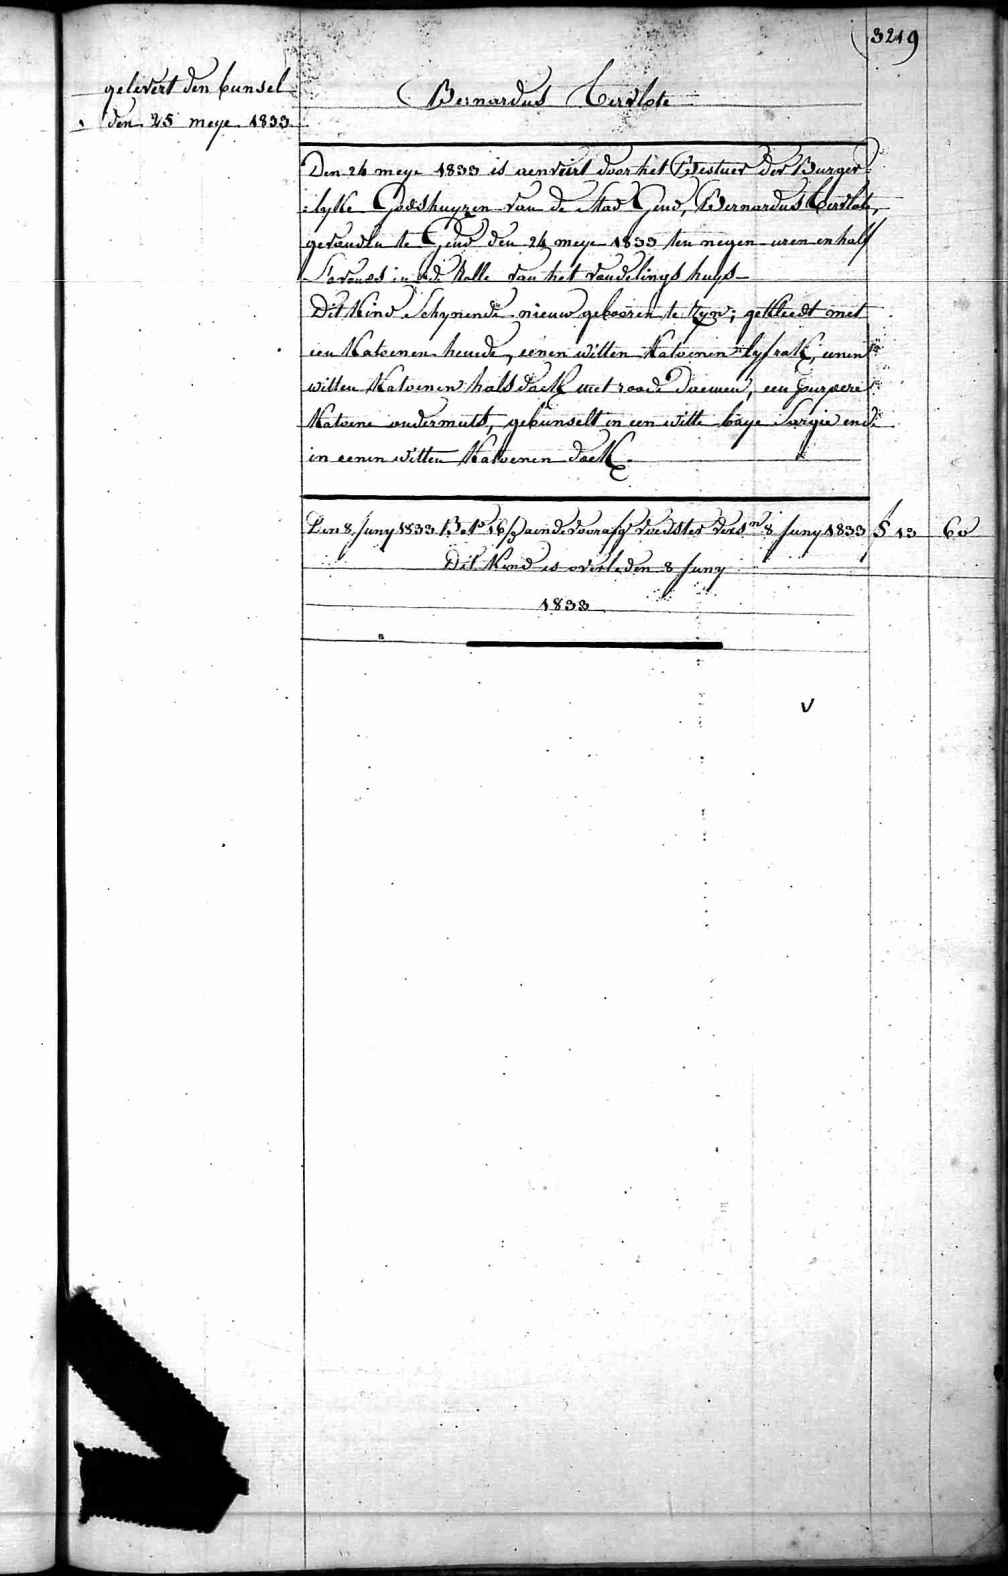 3219
gelevert den bunsel
den 25 meye 1833
Bernardus Cervlote
Den 24 meye 1833 is aenveirt door het Bestuer der Burger
:lyke Godshuyzen van de Stad Gend, Bernardus Cervlote,
gevonden te Gend den 24 meye 1833 ten negen uren en half
S'avonds in de Rolle van het vondelings huys
Dit Kind Schynende nieuw gebooren te zyn; gekleedt met
een Katoenen hemde, eenen witten Katoenen lyfrok, eenen
witten Katoenen halsdoek met roode Blommen, een purpere
Katoene ondermuts, gebunselt in een witte baye Sargie ende
in eenen witten Katoenen doek.
Den 8 Juny 1833 Bet 16 aende voorafg voedster 8 Juny 1833 13 60
Dit Kind is overleden 8 Juny
1833
V